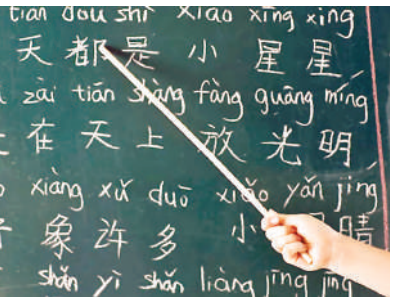 tian dou shi xiao xing xing
天 都 是 小 星 星
zài tiān shàng fàng guāng míng
在 天 上 放 光 明
xiàng xǔ duō xiǎo yǎn jīng
象 许 多 小
shǎn yì shǎn liàng jīng jīng